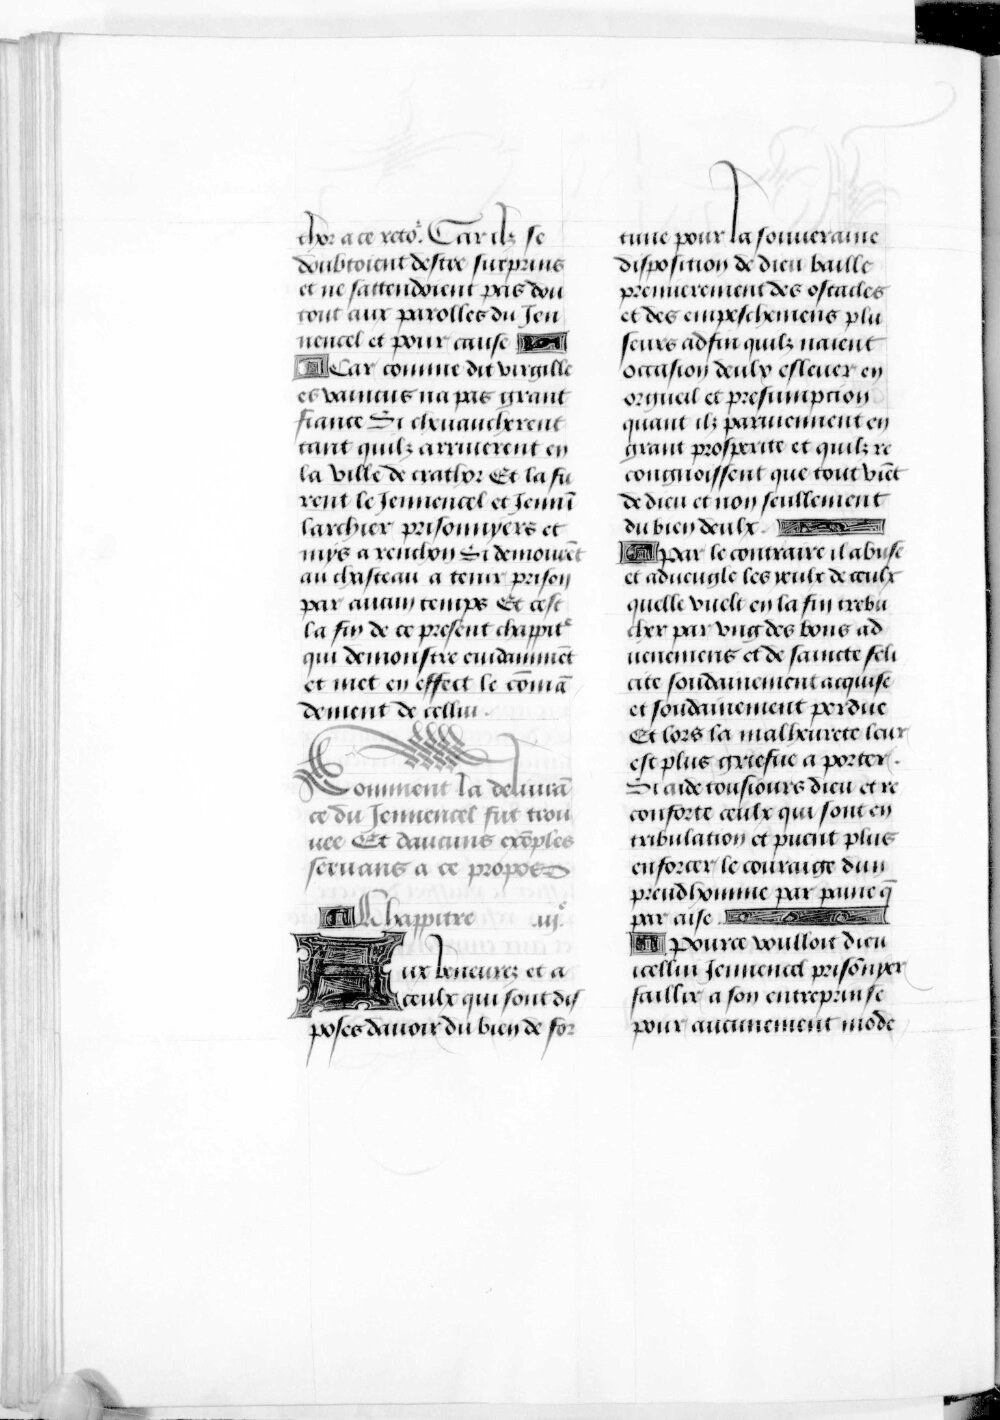 thor a ce reto᷒. Car ilz se
doubtoient destre surprins
et ne sattendoient pas dou
tout aux parolles du Jen
nencel et pour cause
Car comme dit virgille
es vaincus na pas grant
fiance Si cheuaucherent
tant quilz arriuerent en
la ville de crathor Et la fu
rent le Jennencel et Jennī
larchier prisonnyers et
mys a renchon Si demourēt
au chasteau a tenir prison
par aucun temps Et cest
la fin de ce present chappitᵉ
qui demonstre euidammēt
et met en effect le cōmā
dement de cellui.
Comment la deliurā
ce du Jennencel fut trou
uee Et daucuns exēples
seruans a ce propos
Chappitre .iiiᵉ
Aux beneurez et a
ceulx qui sont dis
poses dauoir du bien de for
tune pour la souueraine
disposition de dieu baille
premierement des ostacles
et des empeschemens plu
seurs adfin quilz naient
occasion deulx esleuer en
orgueil et presumpcion
quant ilz paruiennent en
grant prosperite et quilz re
congnoissent que tout viēt
de dieu et non seullement
du bien deulx.
Par le contraire il abuse
et adueugle les yeulx de ceulx
quelle vuelt en la fin trebu
cher par vng des bons ad
uenemens et de saincte feli
cite soudainement acquise
et soudainement perdue
Et lors la malheurete leur
est plus griefue a porter.
Si aide tousiours dieu et re
conforte ceulx qui sont en
tribulation et puent plus
enforcer le couraige dun
preudhomme par paine q̄
par aise.
Pource voulloit dieu
icellui Jennencel prisōnyer
faillir a son entreprinse
pour aucunement mode